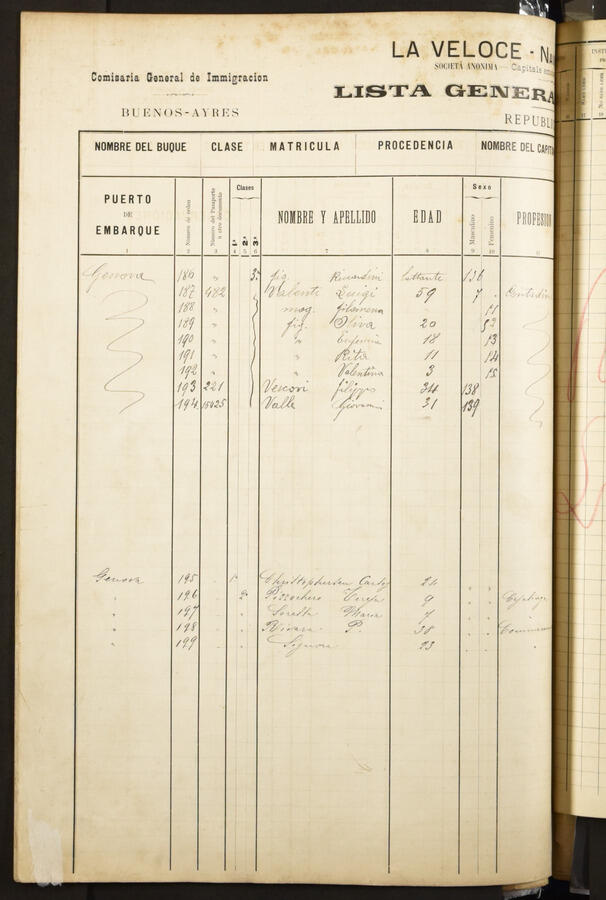 LA VELOCE - Na
SOCIETÁ ANONIMA — Capitale
Comisaria General de Immigracion
LISTA GENERA
BUENOS-AYRES
REPUBLI
NOMBRE DEL BUQUE CLASE MATRICULA PROCEDENCIA NOMBRE DEL CAPIT
PUERTO DE EMBARQUE Número de orden Número del Pasaporte u otro documento Clases 1ª 2ª 3ª NOMBRE Y APELLIDO EDAD Sexo Masculino Femenino PROFESION
1 2 3 4 5 6 7 8 9 10 11
Genova 186 " 3ª fig. lattante 136
187 482 Valenti Luigi 59 7
188 " mog. filomena 11
189 " fig. Oliva 20 12
190 " " 18 13
191 " " Rita 11 14
192 " " Valentina 3 15
193 221 Vescovi filippo 34 138
194 15425 Valle Giovanni 31 139
Genova 195 1ª Christophersen 24
" 196 2ª Teresa 9
" 197 " Maria 7
" 198 " P. 38
" 199 " Signora 23